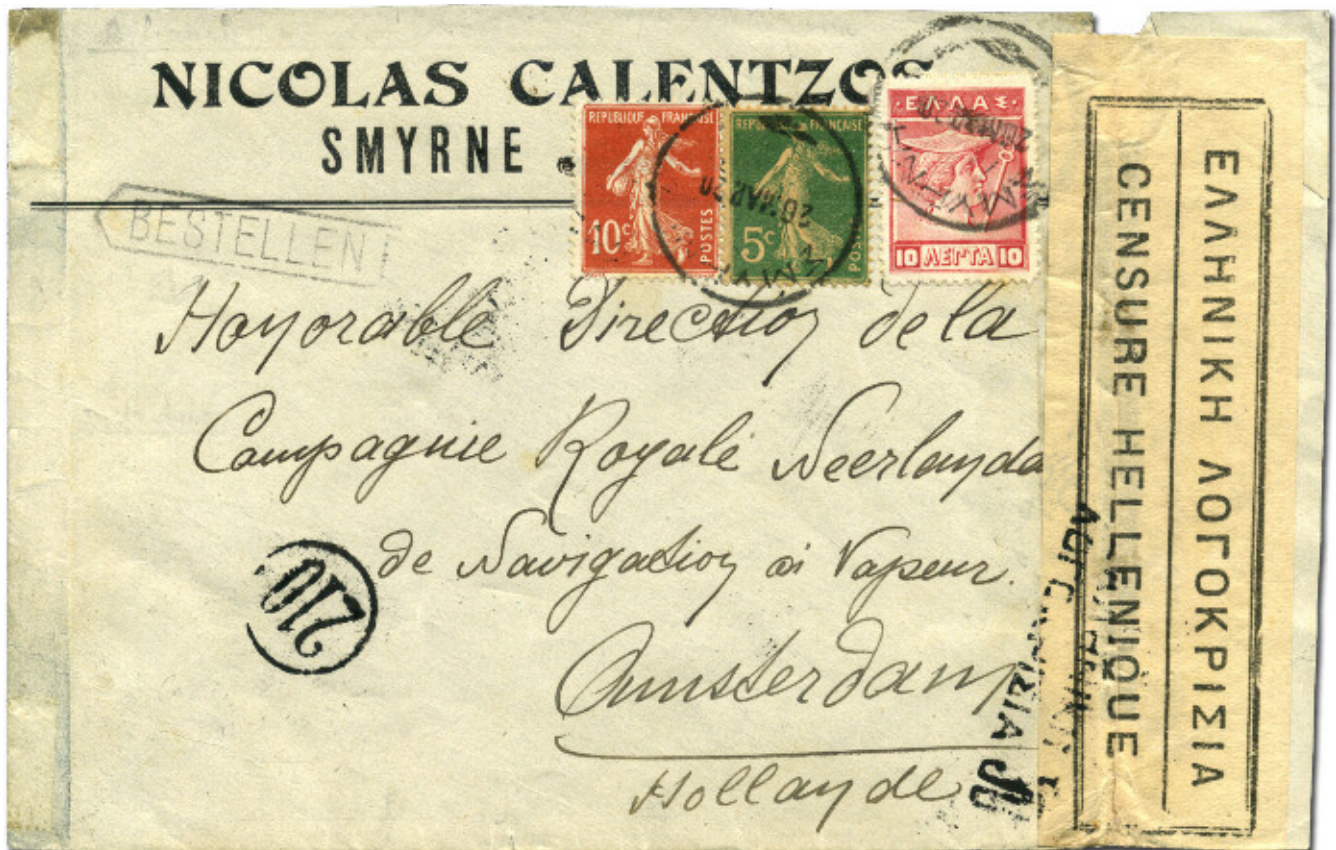 NICOLAS CALENTZOS
SMYRNE
REPUBLIQUE FRANÇAISE
10c
POSTES
REPUBLIQUE FRANÇAISE
5c
20 MAR 20
ΕΛΛΑΣ
10 ΛΕΠΤΑ 10
20 MAR 20
BESTELLEN
Honorable Direction de la
Compagnie Royale Neerlanda
de Navigation à Vapeur.
Amsterdam
Hollande
210
ΕΛΛΗΝΙΚΗ ΛΟΓΟΚΡΙΣΙΑ
CENSURE HELLENIQUE